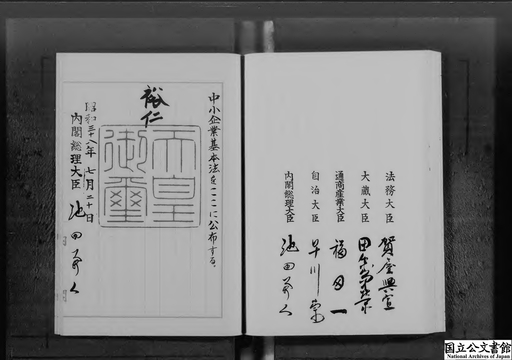 法務大臣 賀屋興宣
大蔵大臣 田中角榮
通商産業大臣 福田一
自治大臣 早川崇
内閣総理大臣 池田勇人
中小企業基本法をここに公布する。
裕仁
天皇御璽
昭和三十八年七月二十日
内閣総理大臣 池田勇人
国立公文書館
National Archives of Japan